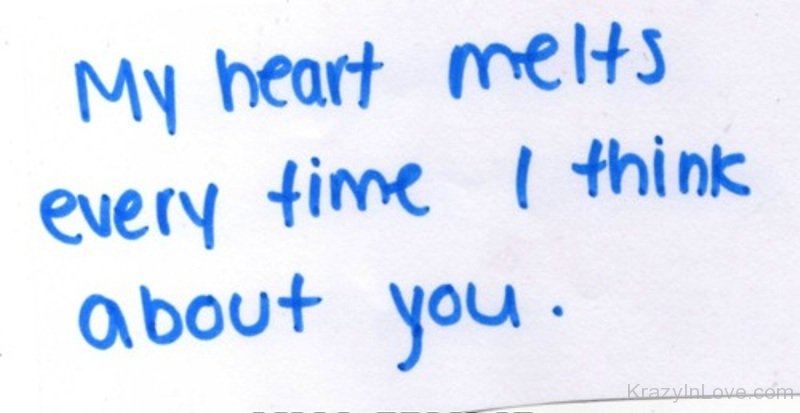 My heart melts
every time I think
about you.
KrazyInLove.com